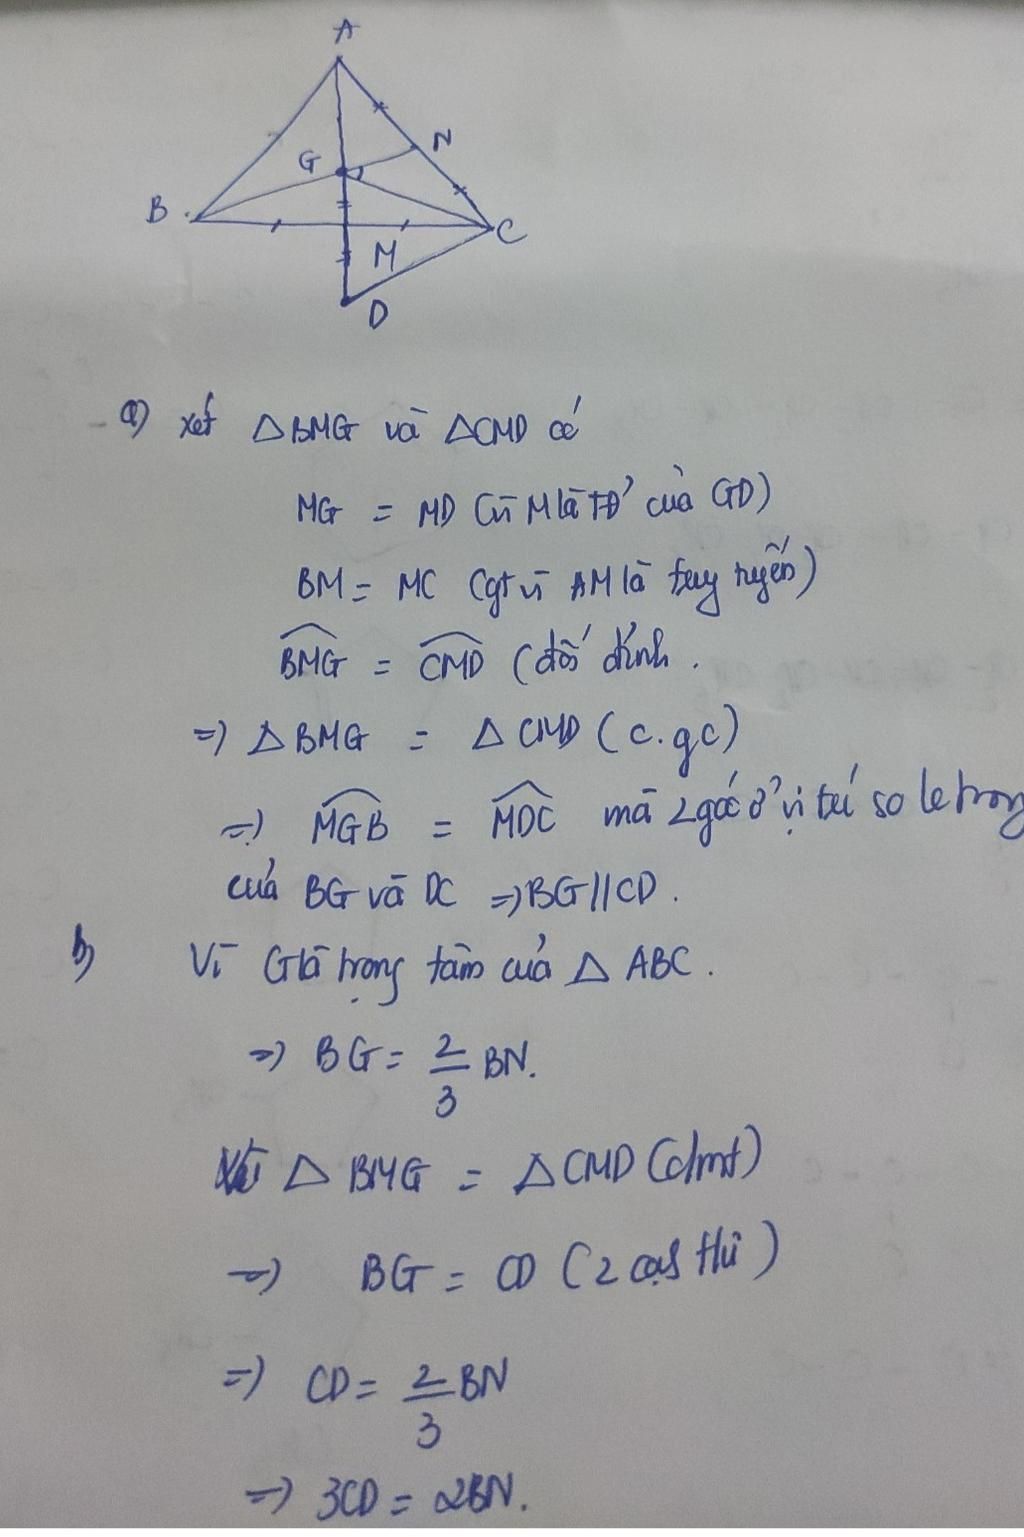 A
N
G
B
C
M
D
a) xét △BMG và △CMD có
MG = MD (vì M là TĐ của GD)
BM = MC (gt vì AM là trung tuyến)
BMG = CMD (đối đỉnh.
=> △BMG = △CMD (c.gc)
=> MGB = MDC mà 2 góc ở vị trí so le trong
của BG và DC => BG//CD.
b) Vì G là trọng tâm của △ABC.
=> BG = 2/3 BN.
△BMG = △CMD (cmt)
=> BG = CD (2 cạnh)
=> CD = 2/3 BN
=> 3CD = 2BN.